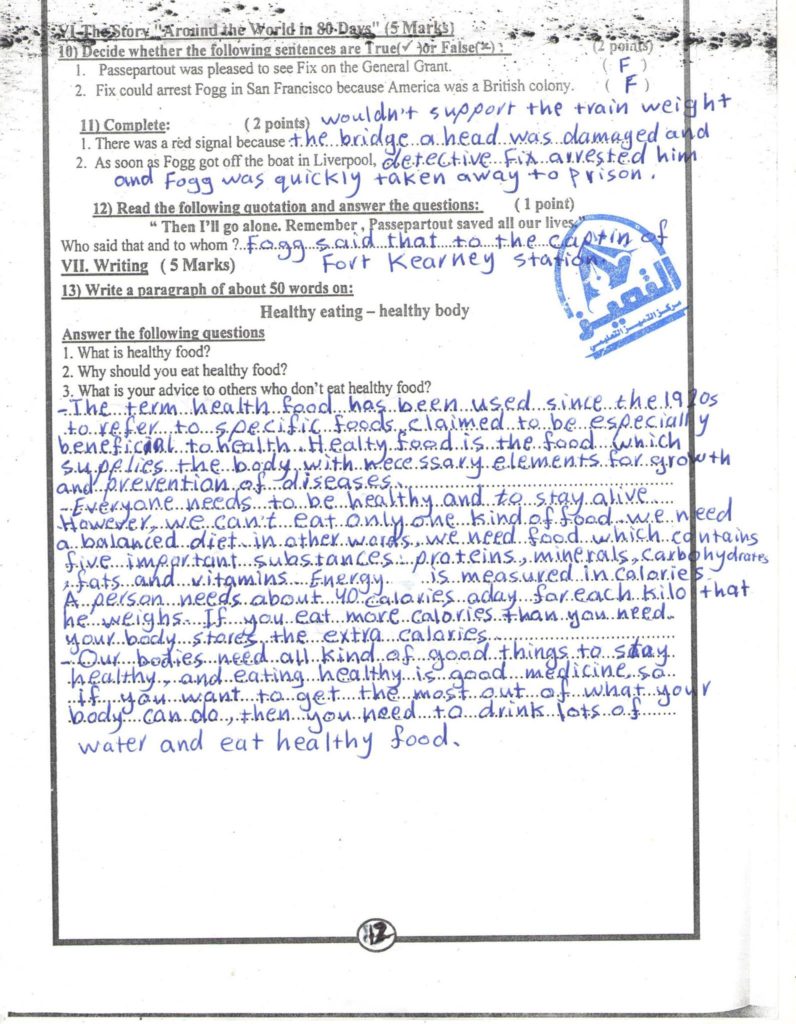 VI-The Story "Around the World in 80 Days" (5 Marks)
10) Decide whether the following sentences are True(✓) or False(×) : (2 points)
1. Passepartout was pleased to see Fix on the General Grant. ( F )
2. Fix could arrest Fogg in San Francisco because America was a British colony. ( F )
11) Complete: (2 points) wouldn't support the train weight
1. There was a red signal because the bridge a head was damaged and
2. As soon as Fogg got off the boat in Liverpool, detective Fix arrested him
and Fogg was quickly taken away to prison.
12) Read the following quotation and answer the questions: (1 point)
“ Then I’ll go alone. Remember , Passepartout saved all our lives.”
Who said that and to whom ? Fogg said that to the captin of
Fort Kearney station.
VII. Writing (5 Marks)
13) Write a paragraph of about 50 words on:
Healthy eating – healthy body
Answer the following questions
1. What is healthy food?
2. Why should you eat healthy food?
3. What is your advice to others who don’t eat healthy food?
- The term health food has been used since the 1920s
to refer to specific foods claimed to be especially
beneficial to health. Healty food is the food which
supplies the body with necessary elements for growth
and prevention of diseases.
- Everyone needs to be healthy and to stay alive
However, we can't eat only one kind of food we need
a balanced diet in other words, we need food which contains
five important substances: proteins, minerals, carbohydrates
, fats and vitamins. Energy is measured in calories
A person needs about 40 calories aday for each kilo that
he weighs. If you eat more calories than you need
your body stores the extra calories
- Our bodies need all kind of good things to stay
healthy, and eating healthy is good medicine, so
if you want to get the most out of what your
body can do, then you need to drink lots of
water and eat healthy food.
التميز
مركز التميز التعليمي
12